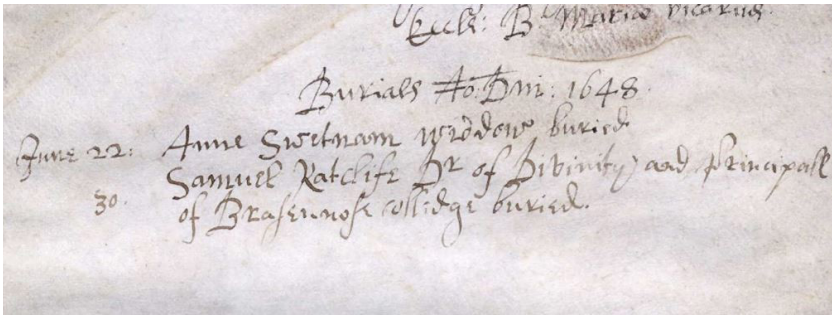 Eccle: B Mariæ vicarius.
Burials Ao: Dni: 1648.
June 22: Anne Swetnam widdow buried
30. Samuel Ratclife Dr of Divinity and Principall
of Brasennose colledge buried.